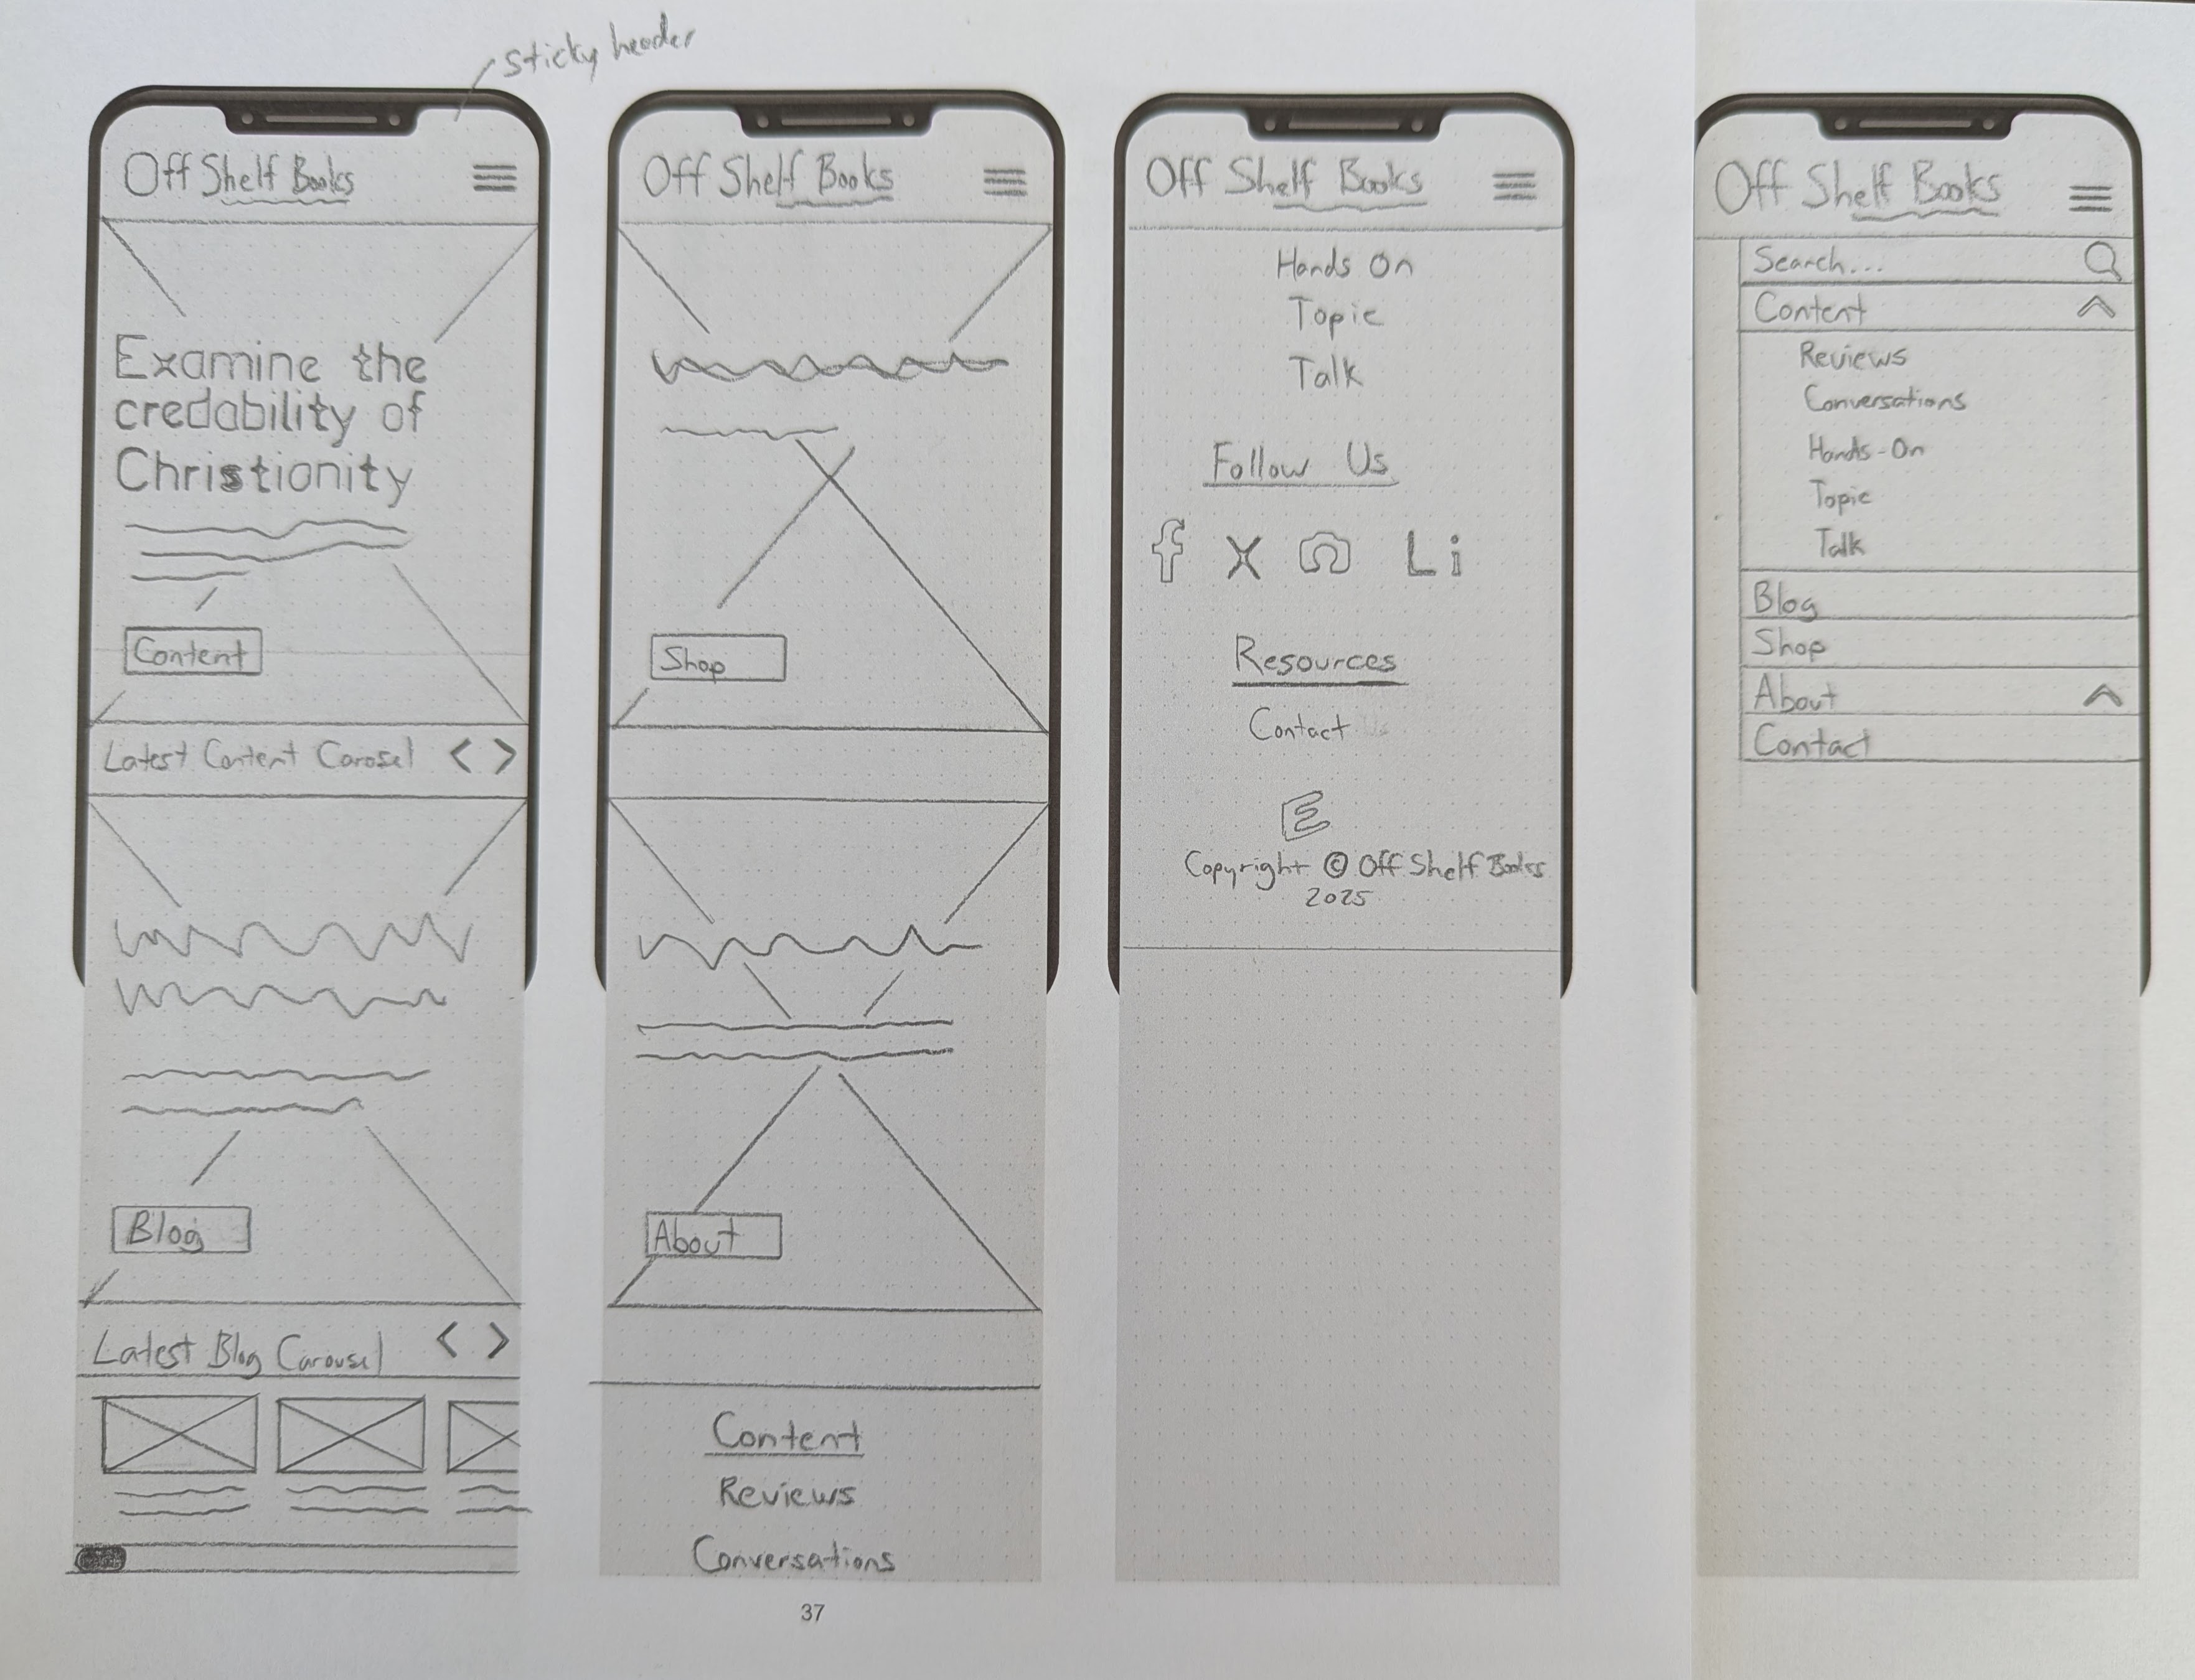 sticky header
Off Shelf Books
Examine the
credability of
Christionity
Content
Latest Content Carosel < >
Blog
Latest Blog Carousel < >
Off Shelf Books
Shop
About
Content
Reviews
Conversations
37
Off Shelf Books
Hands On
Topic
Talk
Follow Us
f X Li
Resources
Contact
E
Copyright © Off Shelf Books
2025
Off Shelf Books
Search...
Content
Reviews
Conversations
Hands-On
Topic
Talk
Blog
Shop
About
Contact